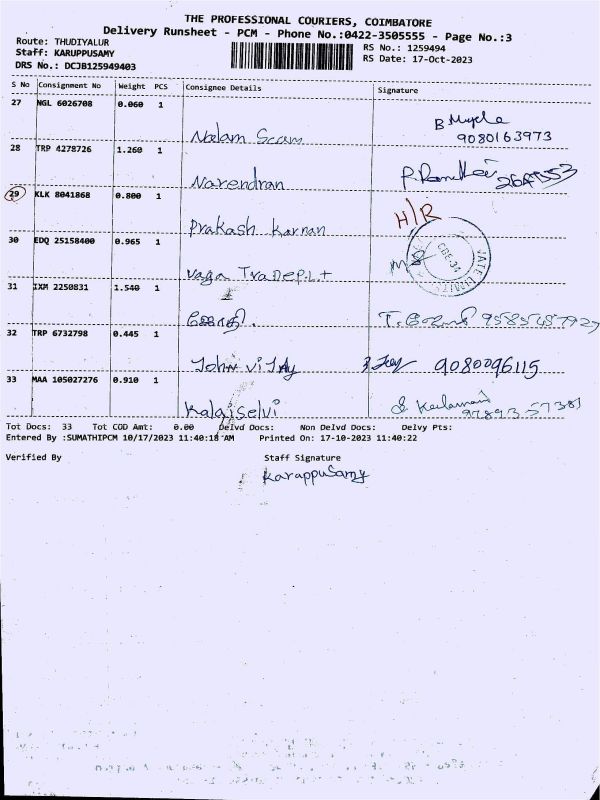 THE PROFESSIONAL COURIERS, COIMBATORE
Delivery Runsheet - PCM - Phone No.:0422-3505555 - Page No.:3
Route: THUDIYALUR
RS No.: 1259494
Staff: KARUPPUSAMY
RS Date: 17-Oct-2023
DRS No.: DCJB125949403
S No Consignment No Weight PCS Consignee Details Signature
27 NGL 6026708 0.060 1
Nalam Scam
9080163973
28 TRP 4278726 1.260 1
Narendran
29 KLK 8041868 0.800 1
Prakash Karnan
H/R
30 EDQ 25158400 0.965 1
CBE-34
31 IXM 2250831 1.540 1
32 TRP 6732798 0.445 1
John Vijay
9080096115
33 MAA 105027276 0.910 1
Kalaiselvi
Tot Docs: 33 Tot COD Amt: 0.00 Delvd Docs: Non Delvd Docs: Delvy Pts:
Entered By :SUMATHIPCM 10/17/2023 11:40:18 AM Printed On: 17-10-2023 11:40:22
Verified By Staff Signature
KarappuSamy